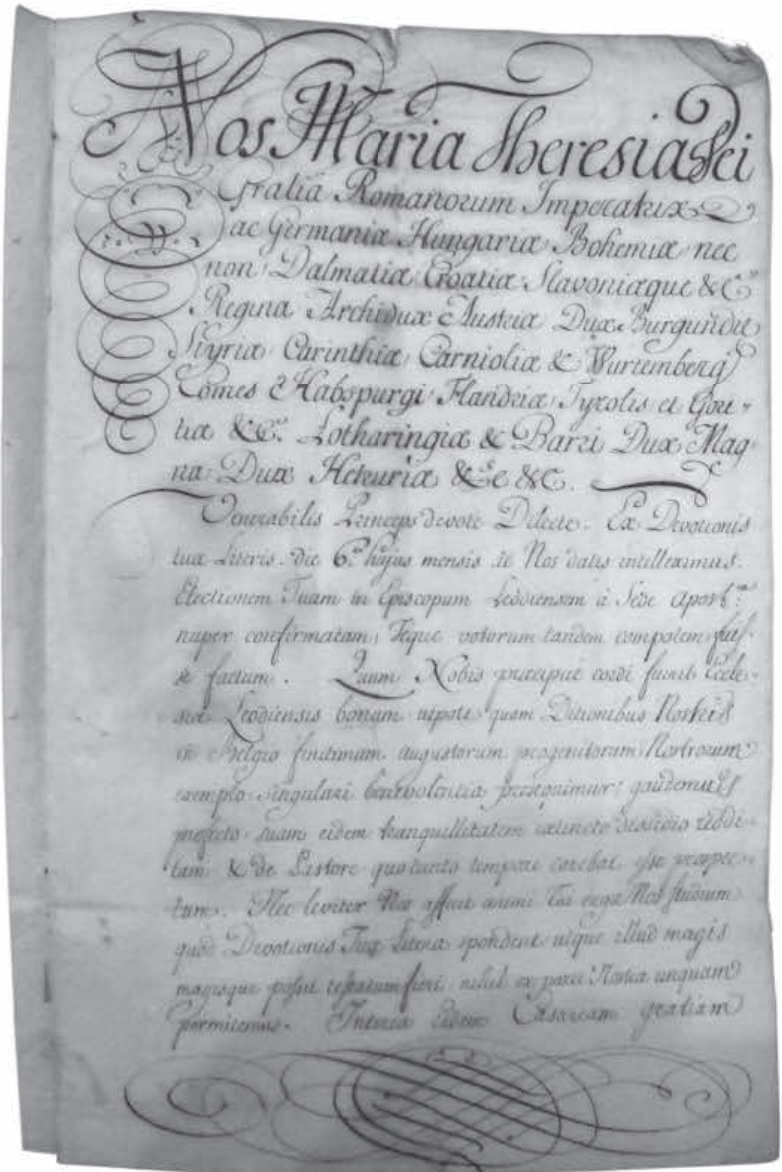 Nos Maria Theresia Dei
Gratiâ Romanorum Imperatrix
ac Germaniæ Hungariæ Bohemiæ nec
non Dalmatiæ Croatiæ Slavoniæque &c.
Regina Archidux Austriæ Dux Burgundiæ
Styriæ Carinthiæ Carnioliæ & Wurtemberg
Comes Habspurgi Flandriæ Tyrolis et Gori-
tiæ &c. Lotharingiæ & Barri Dux Mag-
na Dux Hetruriæ &c &c.
Venerabilis Princeps devote Dilecte. Ex Devotionis
tuæ Literis die 6.ta hujus mensis ad Nos datis intelleximus
Electionem Tuam in Episcopum Leodiensem à Sede Apost.
nuper confirmatam, Teque votorum tandem compotem fuis-
se factum. Quum Nobis præcipuè cordi fuerit Eccle-
siæ Leodiensis bonum utpote quam Ditionibus Nostris
in Belgio finitimam augustorum progenitorum Nostrorum
exemplo singulari benevolentia prosequimur; gaudemus
profecto suam eidem tranquillitatem extincto dissidio reddi-
tam & de Pastore quo tanto tempore carebat esse prospec-
tum. Nec leviter Nos affecit animi Tui erga Nos studium
quod Devotionis Tuæ Literæ spondent, utque illud magis
magisque possit testatum fieri nihil ex parte Nostra unquam
permitemus. Interea eidem Cæsaream gratiam